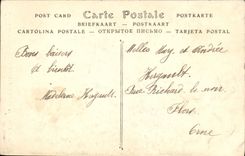 POST CARD Carte Postale POSTKARTE
BRIEFKAART — POSTKAART
CARTOLINA POSTALE — ОТКРЫТОЕ ПИСЬМО — TARJETA POSTAL
Bons baisers
et bientôt
Madeleine Huguelt
Melles et Andrée
Huguelt
Rue Richard le noir
Flers
Orne